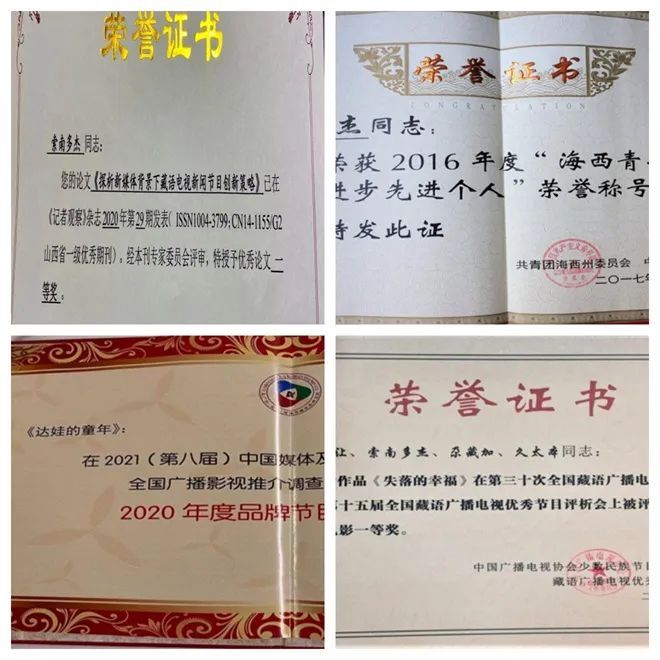 荣誉证书
索南多杰 同志：
您的论文《探析新媒体背景下藏语电视新闻节目创新策略》已在
《记者观察》杂志 2020 年第 29 期发表（ ISSN1004-3799; CN14-1155/G2
山西省一级优秀期刊）。经本刊专家委员会评审，特授予优秀论文 二
等奖 。
荣誉证书
CONGRATULATION
杰 同志：
荣获 2016 年度“海西青
进步先进个人”荣誉称号
特发此证
共青团海西州委员会
二〇一七年
《达娃的童年》：
在 2021（第八届）中国媒体及
全国广播影视推介调查
2020 年度品牌节目
荣誉证书
让、索南多杰、尕藏加、久太本同志：
作品《失落的幸福》在第三十次全国藏语广播电
第十五届全国藏语广播电视优秀节目评析会上被评
电影一等奖。
中国广播电视协会少数民族节目
藏语广播电视优秀